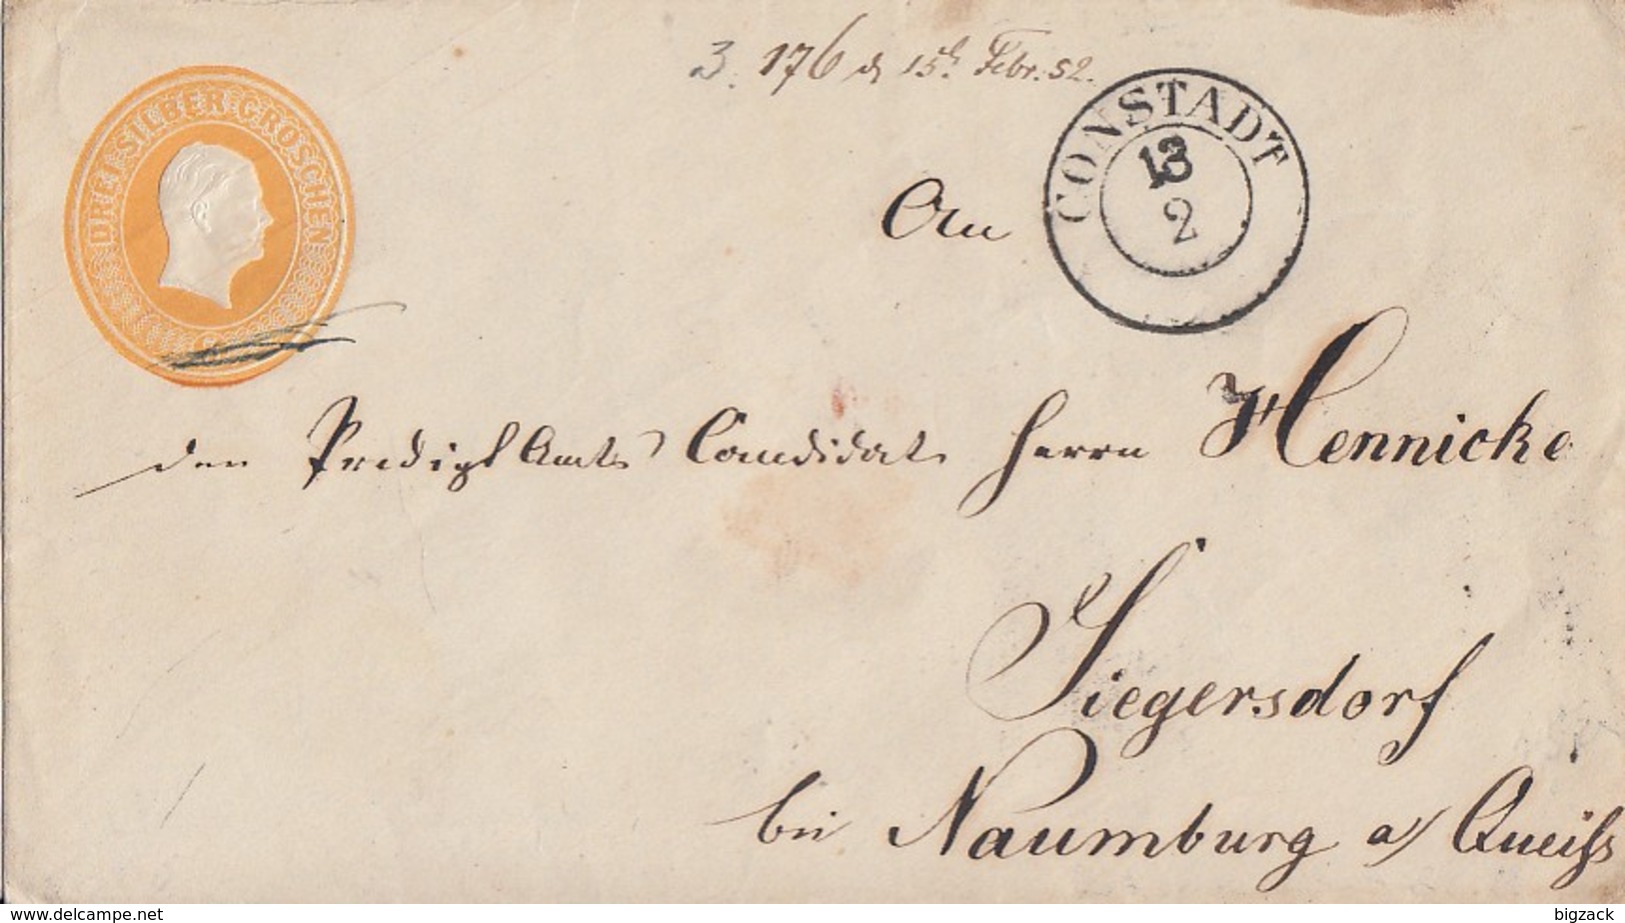 3. 176 d. 15t. Febr. 52.
DREI SILBER GROSCHEN
CONSTADT
13
2
An
den Predigt Amts Candidat Herrn Hennicke
Siegersdorf
bei Naumburg a/ Queiß
www.delcampe.net
bigzack